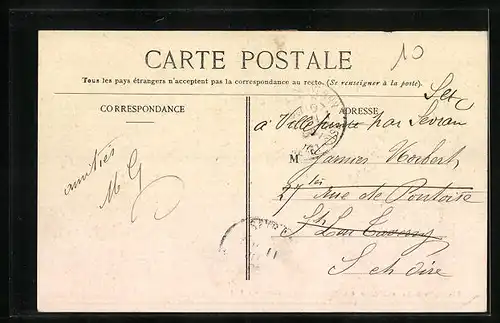 10
CARTE POSTALE
Tous les pays étrangers n'acceptent pas la correspondance au recto. (Se renseigner à la poste).
CORRESPONDANCE
ADRESSE
à par Sevran
M
27 bis rue de Pontoise
amitiés
M G
St Leu Taverny
S et Oise